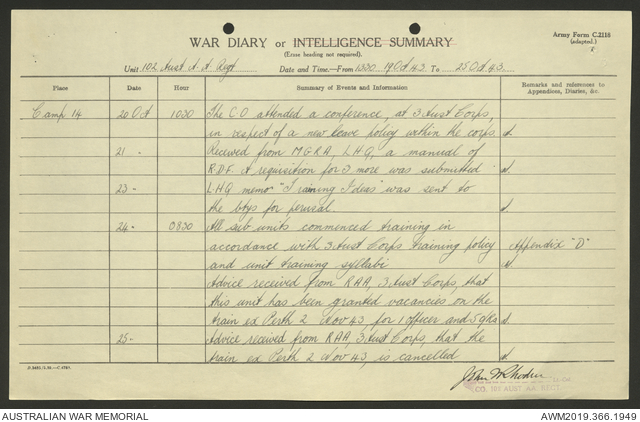 Army Form C.2118
(adapted.)
WAR DIARY or INTELLIGENCE SUMMARY
(Erase heading not required).
Unit 102 Aust A.A. Regt Date and Time.—From 1330 19 Oct 43 To 25 Oct 43
Place Date Hour Summary of Events and Information Remarks and references to Appendices, Diaries, &c.
Camp 14 20 Oct 1030 The CO attended a conference, at 3 Aust Corps,
in respect of a new leave policy within the corps
21 - Received from MGRA, LHQ, a manual of
R.D.F. A requisition for 3 more was submitted
23 - LHQ memo "Training Ideas" was sent to
the btys for perusal
24 - 0830 All sub units commenced training in
accordance with 3 Aust Corps training policy Appendix "D"
and unit training syllabi
Advice received from RAA, 3 Aust Corps, that
this unit has been granted vacancies on the
train ex Perth 2 Nov 43 for 1 officer and 5 ORs
25 - Advice recieved from RAA, 3 Aust Corps, that the
train ex Perth 2 Nov 43, is cancelled
AUSTRALIAN WAR MEMORIAL AWM2019.366.1949